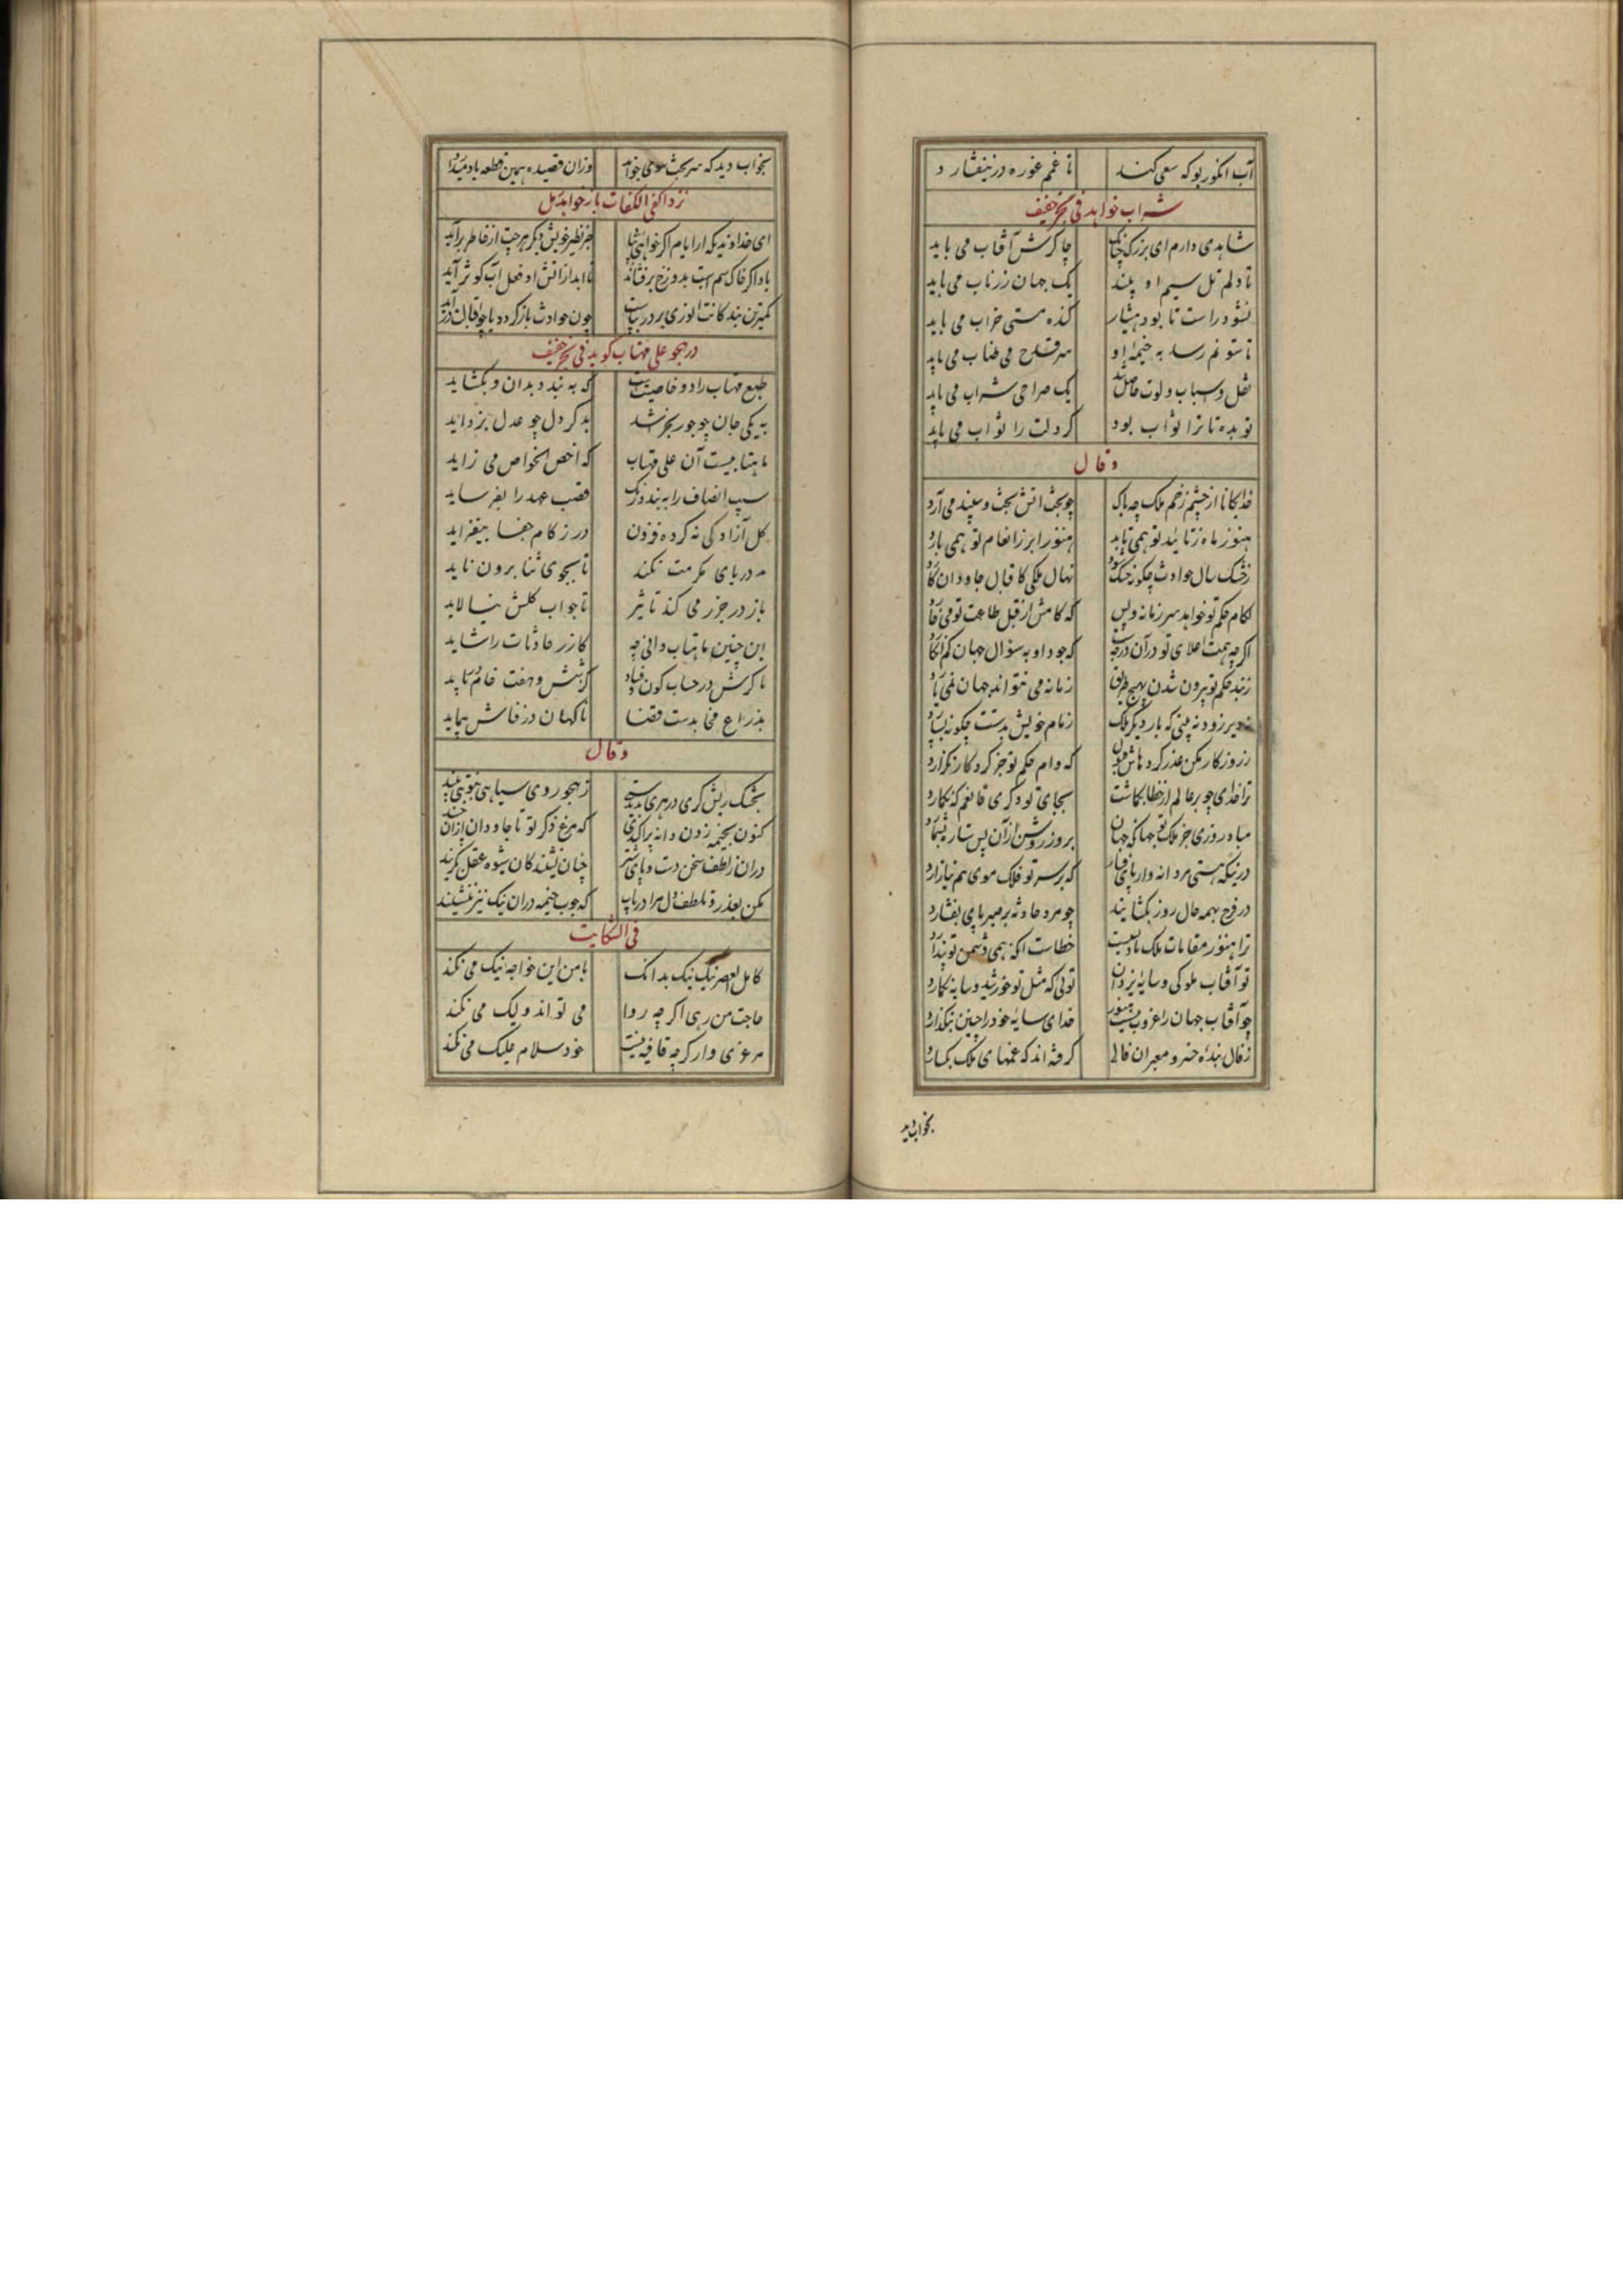 آب انکور بو که سعی کند تا غم غوره در نیفشارد
شراب خواهد فی بحر خفیف
شاهدی دارم ای بزرک چنانک چاکرش آفتاب می باید
تا دلم تل سیم او بیند یک جهان زر ناب می باید
نشود راست تا بود هشیار کنده مستی خراب می باید
تا ستونم رسد به خیمهٔ او سه قدح می طناب می باید
نقل و اسباب ولوت حاصل شد یک صراحی شراب می باید
تو بده تا ترا ثواب بود کر دلت را ثواب می باید
و قال
خدایکانا از چشم زخم ملک چه باک چو بخت آتش بخت و سپند می آرد
هنوز ماه ز تائید تو همی تابد هنوز ابر ز انعام تو همی بارد
ز خشک سال حوادث چکونه خشک شود نهال ملکی کاقبال جاودان کارد
لکام حکم تو خواهد سر زمانه و بس که کامش از قبل طاعت تو می خارد
اکرچه همت اعلای تو در آن درجه است که جود او به سؤال جهان کم انکارد
ز بند حکم تو بیرون شدن بهیچ طریق زمانه می نتواند جهان نمی یارد
نه دیر زود نه بینی که بار دیکر ملک زمام خویش بدستت چکونه بسپارد
ز روزکار مکن عذر کردهاش قبول که وام حکم تو جز کردکار نکزارد
ترا خدای چو بر عالم از خطا بکماشت بجای تو دکری قانعم که بکمارد
مباد روزی جز ملک تو جهان که جهان بروز روشن از آن پس ستاره بشمارد
درینکه هستی مردانه وار پای فشار که بر سر تو فلک موی هم نیازارد
در فرج بهمه حال روز بکشایند چو مرد حادثه بر صبر پای بفشارد
ترا هنوز مقامات ملک باقیست خطاست انکه همی دشمن تو پندارد
تو آفتاب ملوکی و سایهٔ یزدان توئی که مثل تو خورشید و سایه بکمارد
چو آفتاب جهان را غروب ممکن نیست خدای سایهٔ خود را چنین بنکذارد
ز فال بندهٔ خسرو معبران فالی کرفته اند که غمهای ملک بکسارد
بخواب دید
بخواب دید که سر بخت سوی خواند وزان قصیده همین قطعه یاد میدارد
نزد اکفی الکفات باز خواهد مل
ای خداوندیکه از ایام اکر خواهی بیابی جز نظیر خویش دیکر هرچت از خاطر برآید
باد اکر خاک سم اسبت بدوزخ برفشاند تا ابد از آتش او فعل آب کوثر آید
کمترین بندکانت انوری بر در ستادست چون حوادث بازکردد یا چو اقبال اندر آید
در هجو علی مهتاب کوید فی بحر خفیف
طبع مهتاب را دو خاصیت است که به بندد بدان و بکشاید
به یکی جان چو جور بخراشد به دکر دل چو عدل بزداید
ماهتابیست آن علی مهتاب که اخص الخواص می زاید
سیب انصاف را نه بندد رنک قصب عهد را بفرساید
کل آزادکی نه کرده فزون در زکام جفا بیفزاید
مد دریای مکرمت نکند تا بجوی ثنا برون ناید
باز در جزر می کند تاثیر تا جواب کلش نیالاید
این چنین ماهتاب دانی چه کازر حادثات را شاید
تا کرش در حساب کون و فساد کر بشش و هفت خام درباید
بذراع فنا بدست قضا ناکهان در قفاش پیماید
و قال
بجنک ریش کری درهری بدستی ز هجو روی سیاهی بتونبی بیند
کنون بخیمه زدن دانه پراکندی که مرغ ذکر تو تا جاودان ازان چیند
دران ز لطف سخن دست و پای چنان نشیند کان شیوه عقل بکزیند
مکن بعذر و تلطف دل مرا دریاب که چوب خیمه دران نیک نیز بنشیند
فی الشکایت
کامل العصر نیک نیک بدانک با من این خواجه نیک می نکند
حاجت من رهی اکرچه روا می تواند ولیک می نکند
مرغزی وار کرچه قافیه نیست خود سلام علیک می نکند